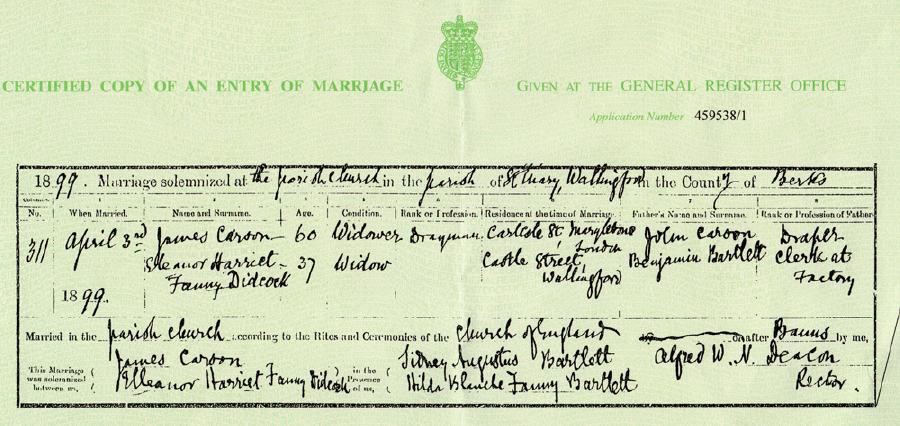 CERTIFIED COPY OF AN ENTRY OF MARRIAGE
GIVEN AT THE GENERAL REGISTER OFFICE
Application Number 459538/1
1899. Marriage solemnized at the parish church in the parish of St Mary, Wallingford in the County of Berks
No. When Married. Name and Surname. Age. Condition. Rank or Profession. Residence at the time of Marriage. Father's Name and Surname. Rank or Profession of Father
311 April 3rd James Carson 60 Widower Drayman Carlisle St Marylebone London John Carson Draper
Eleanor Harriet Fanny Didcock 37 Widow Castle Street, Wallingford Benjamin Bartlett Clerk at Factory
1899.
Married in the parish church according to the Rites and Ceremonies of the Church of England or after Banns by me,
This Marriage was solemnized between us, James Carson in the Presence of us, Sidney Augustus Bartlett Alfred W. N. Deacon
Elleanor Harriet Fanny Didcock Hilda Blanche Fanny Bartlett Rector.